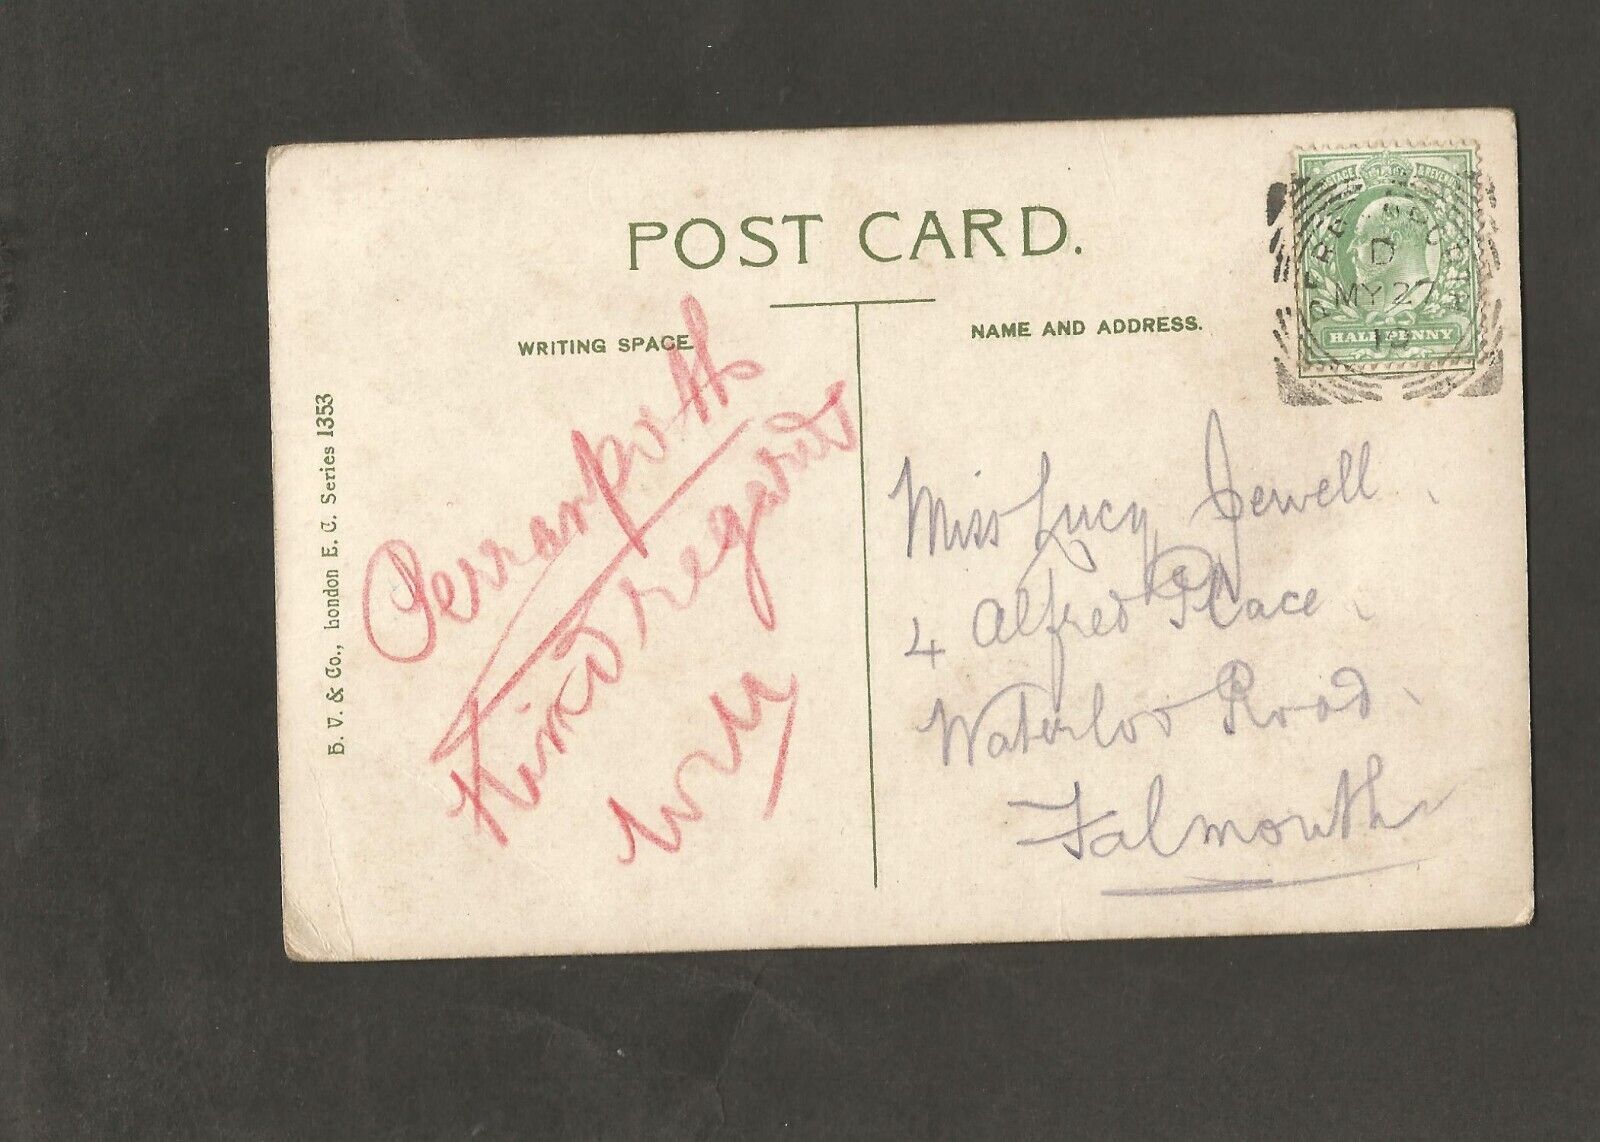 POST CARD.
WRITING SPACE.
NAME AND ADDRESS.
POSTAGE & REVENUE
D
MY 27
10
HALFPENNY
Perranporth
Kind regards
Miss Lucy Jewell
4 Alfred Place
Waterloo Road
Falmouth
H. V. & Co., London E. C. Series 1353